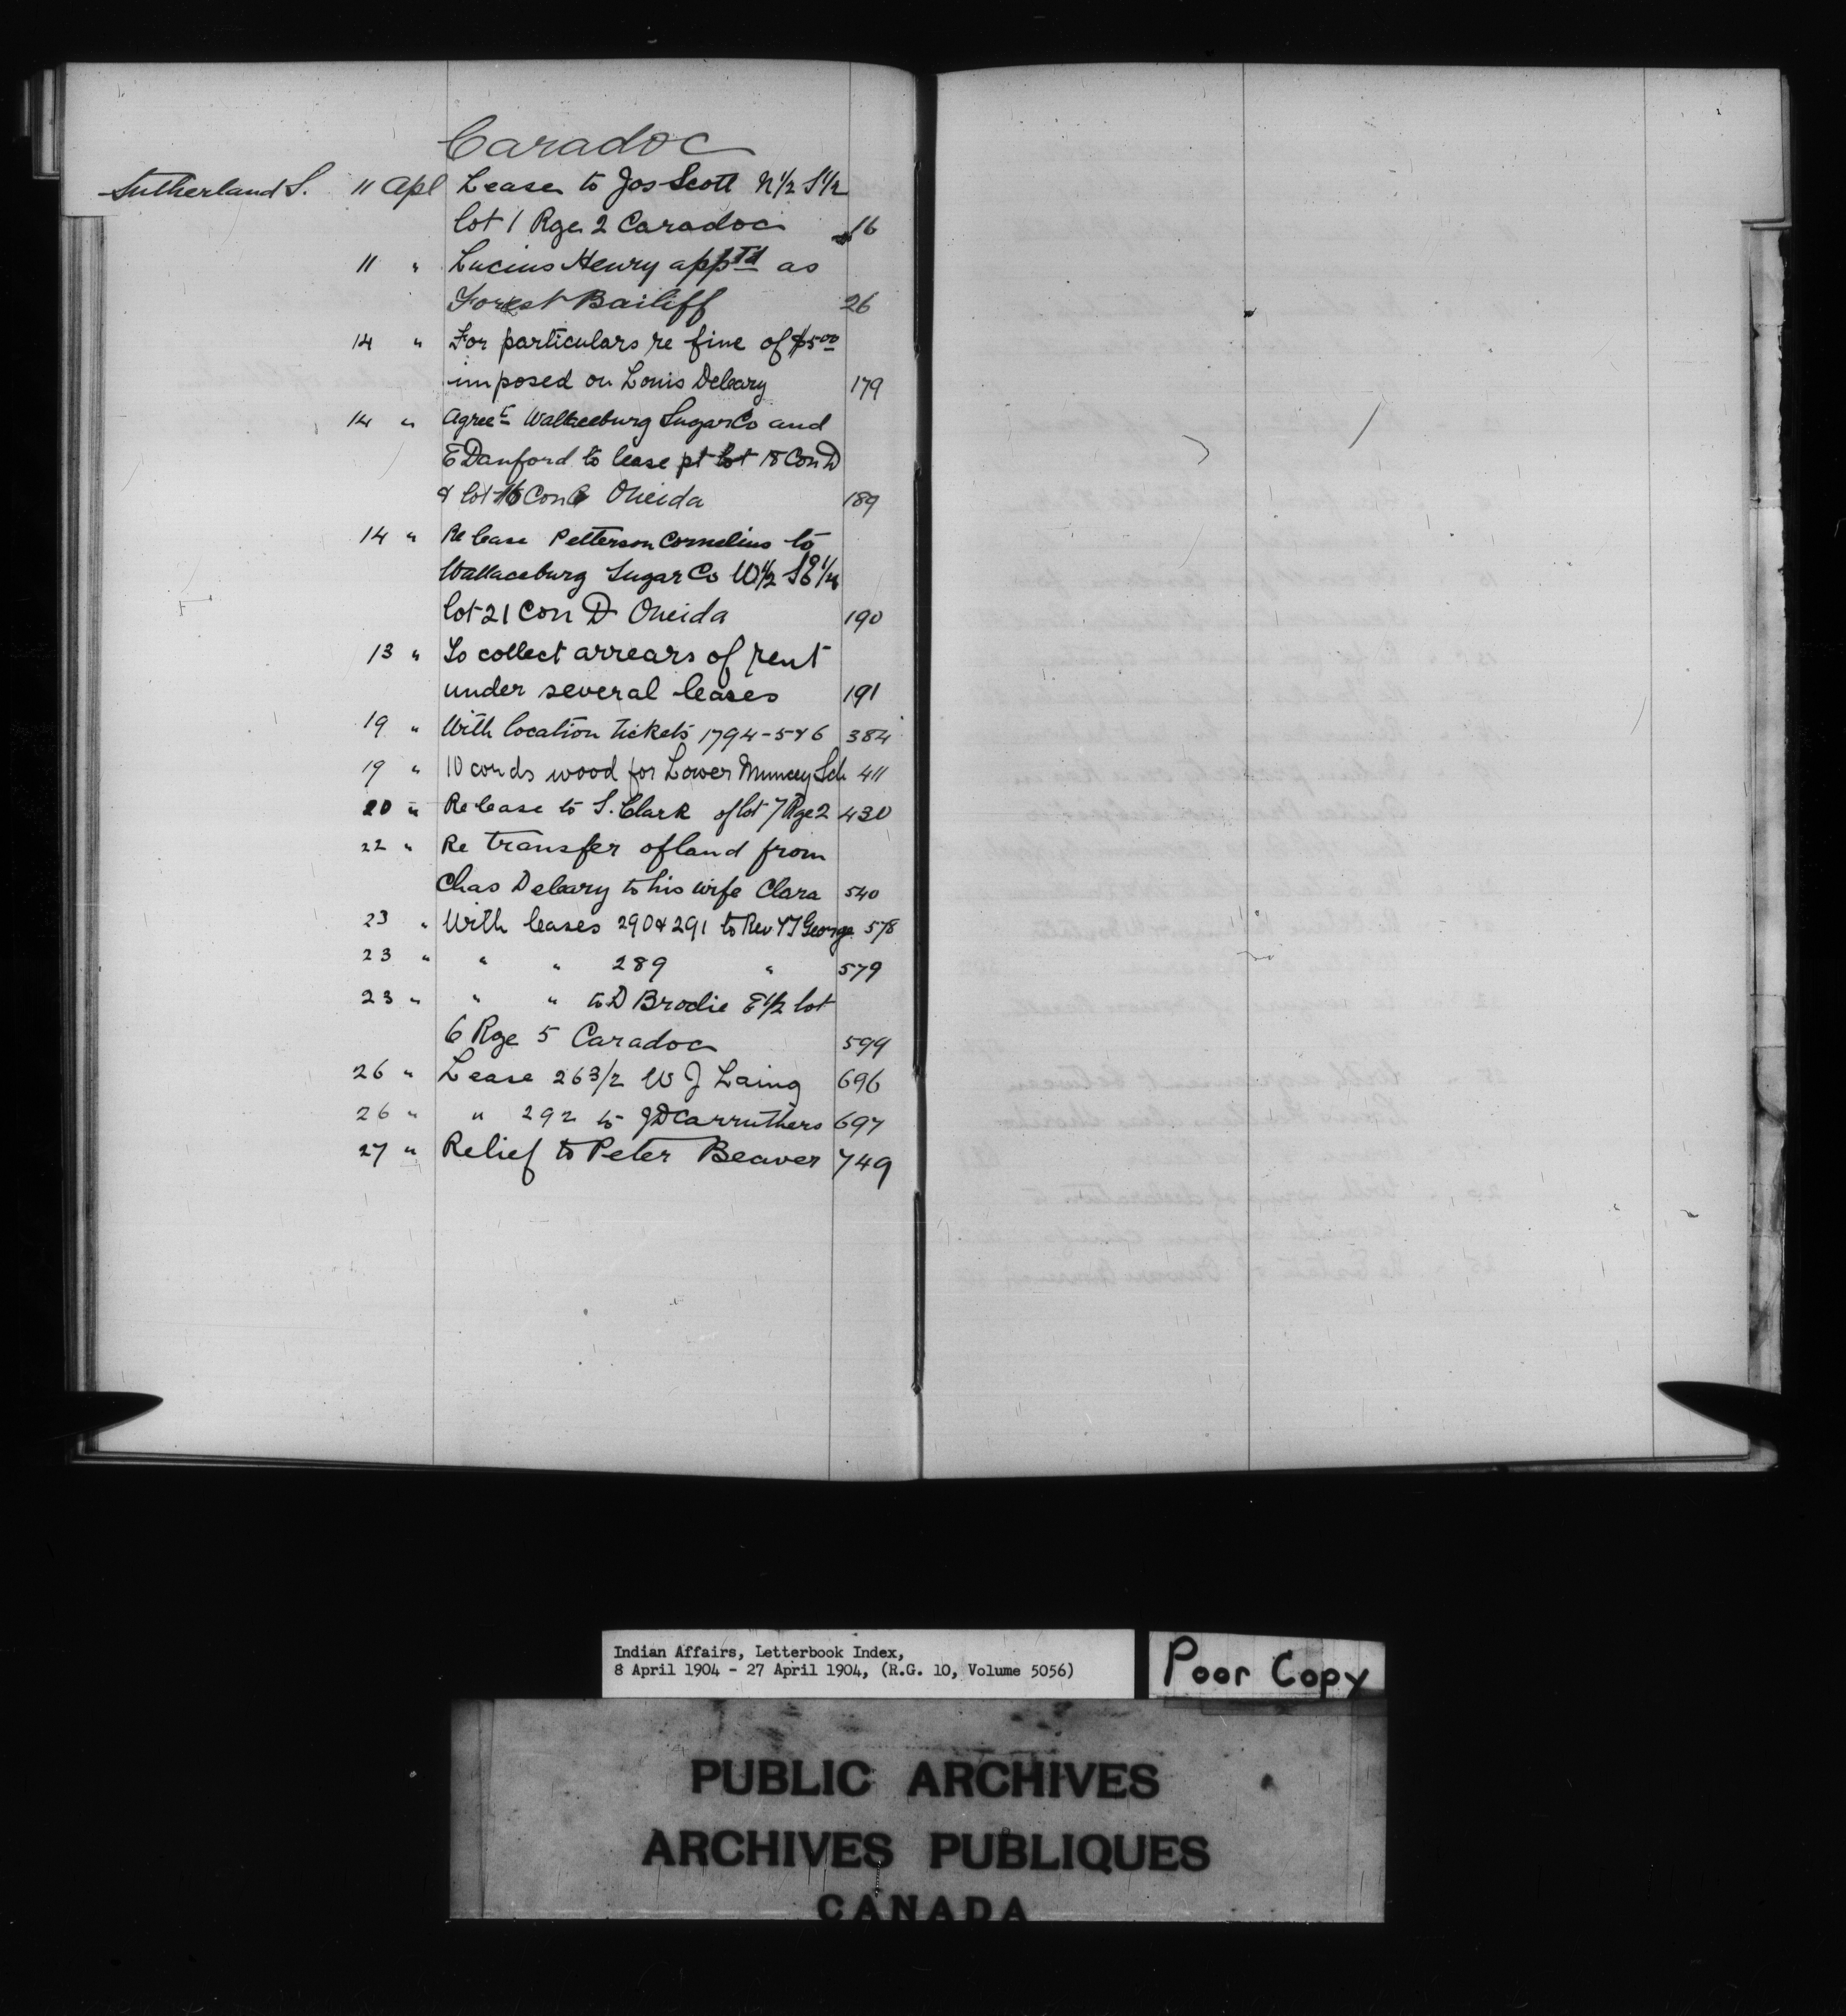 Caradoc
Sutherland S. 11 Apl Lease to Jos Scott N 1/2 S 1/2
lot 1 Rge 2 Caradoc 16
11 " Lucius Henry appTd as
Forest Bailiff 26
14 " For particulars re fine of $5 00
imposed on Louis Deleary 179
14 " Agreet Wallaceburg Sugar Co and
E Danford to lease pt lot 18 Con D
& lot 16 Con Oneida 189
14 " Release Petterson Cornelius to
Wallaceburg Sugar Co W 1/2 SE 1/4
lot 21 Con D Oneida 190
13 " To collect arrears of rent
under several leases 191
19 " With location tickets 1794-5&6 384
19 " 10 cords wood for Lower Muncey Sch 411
20 " Release to S. Clark of lot 7 Rge 2 430
22 " Re transfer of land from
Chas Deleary to his wife Clara 540
23 " With leases 290 & 291 to Rev George 578
23 " " " 289 " 579
23 " " " to D Brodie E 1/2 lot
6 Rge 5 Caradoc 599
26 " Lease 263/2 W J Laing 696
26 " " 292 to J D Carruthers 697
27 " Relief to Peter Beaver 749
Indian Affairs, Letterbook Index,
8 April 1904 - 27 April 1904, (R.G. 10, Volume 5056)
Poor Copy
PUBLIC ARCHIVES
ARCHIVES PUBLIQUES
CANADA